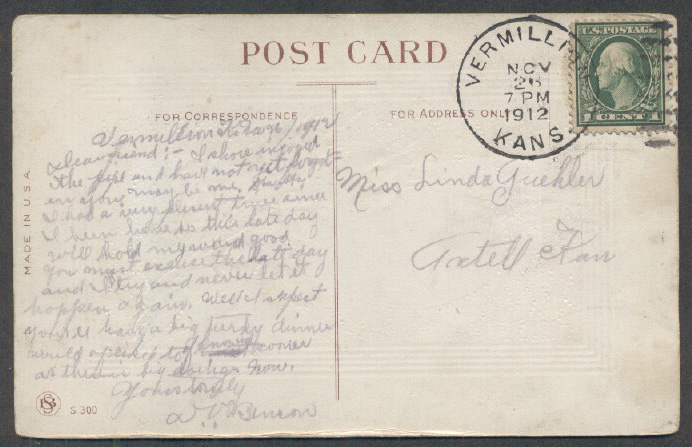 POST CARD
VERMILLI
NOV
26
7 PM
1912
KANS
U.S. POSTAGE
1 CENT 1
FOR CORRESPONDENCE
FOR ADDRESS ONLY
MADE IN U.S.A.
Vermillion Ks Nov 26/1912
Dear friend:- I shore injoyed
the and have not yet forgot-
en you, may be me,
I had a very plesent time since
I been here so this late day
will hold my word good
You must excuse the late day
and I try and never let it
happen again. Well I expect
you'll have a big turky dinner
would a liked to sooner
as their is big doings now.
Yours truly
Benson
Miss Linda Guehler
Axtell Kan
S 300